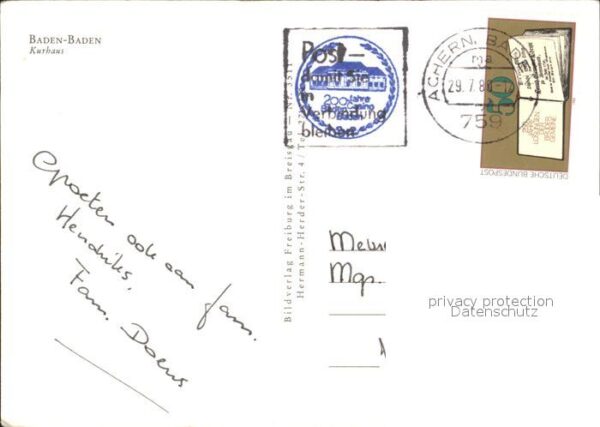 BADEN-BADEN
Kurhaus
Post-
damit Sie
in
Verbindung
bleiben
200 Jahre
ACHERN, BADEN
29.7.80-12
759
50
DEUTSCHE BUNDESPOST
Groeten ook aan fam.
Hendriks,
Fam. Daens
Bildverlag Freiburg im Breisgau — Nr. 3511
Hermann-Herder-Str. 4 / Tel.
Mgr.
privacy protection
Datenschutz